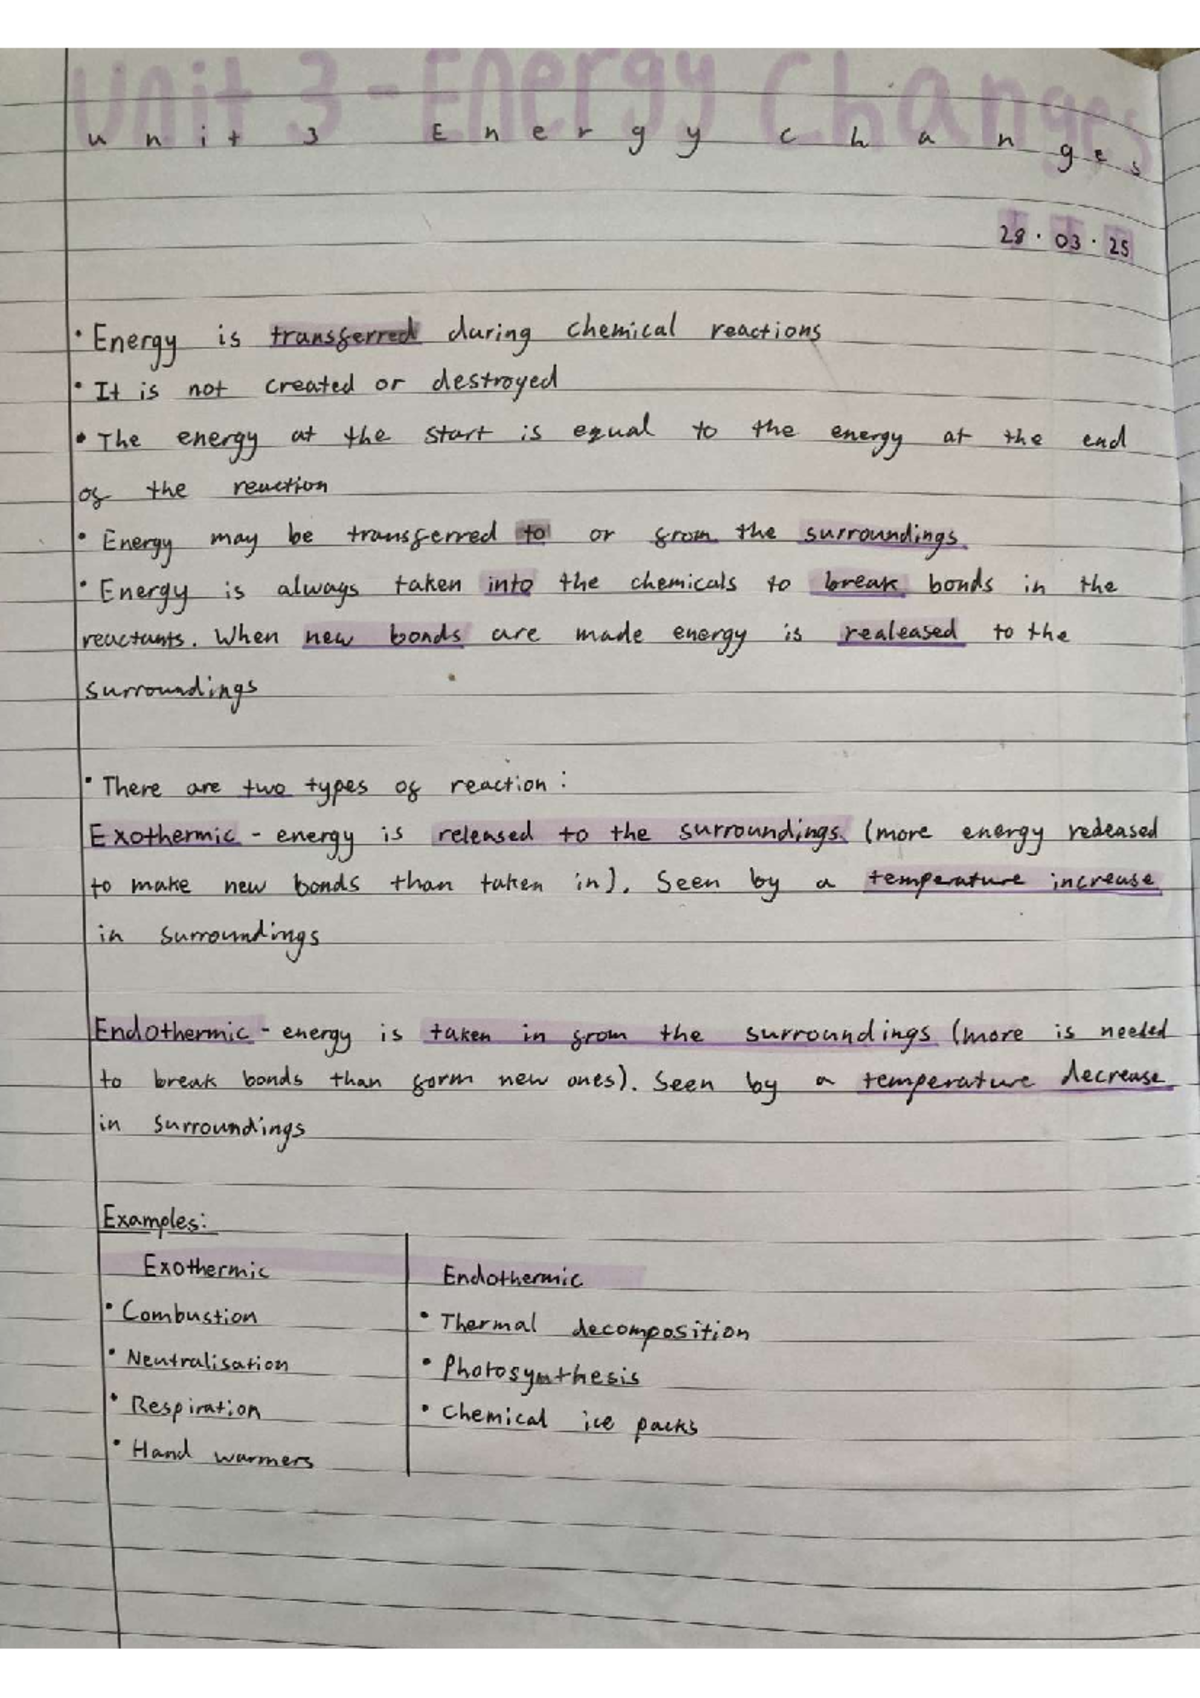 Unit 3 - Energy Changes
unit 3 Energy changes
28 · 03 · 25
• Energy is transferred during chemical reactions
• It is not created or destroyed
• The energy at the start is equal to the energy at the end
of the reaction
• Energy may be transferred to or from the surroundings.
• Energy is always taken into the chemicals to break bonds in the
reactants. When new bonds are made energy is realeased to the
surroundings
• There are two types of reaction:
Exothermic - energy is released to the surroundings. (more energy redeased
to make new bonds than taken in). Seen by a temperature increase
in surroundings
Endothermic - energy is taken in from the surroundings (more is needed
to break bonds than form new ones). Seen by a temperature decrease
in surroundings
Examples:
Exothermic
• Combustion
• Neutralisation
• Respiration
• Hand warmers
Endothermic
• Thermal decomposition
• Photosynthesis
• Chemical ice packs